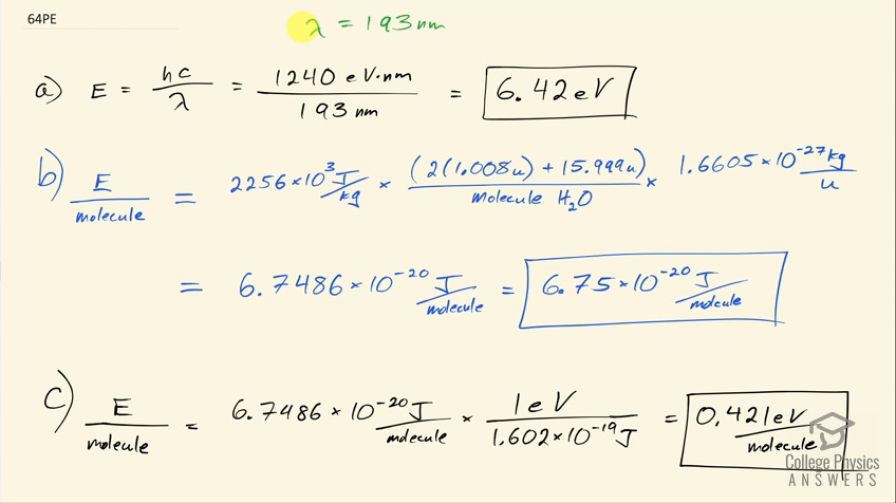 64PE
λ = 193 nm
a) E = hc/λ = 1240 eV·nm / 193 nm = 6.42 eV
b) E/molecule = 2256×10³ J/kg × (2(1.008u) + 15.999u)/molecule H₂O × 1.6605×10⁻²⁷ kg/u
= 6.7486×10⁻²⁰ J/molecule = 6.75×10⁻²⁰ J/molecule
c) E/molecule = 6.7486×10⁻²⁰ J/molecule × 1 eV / 1.602×10⁻¹⁹ J = 0.421 eV/molecule
College Physics
ANSWERS